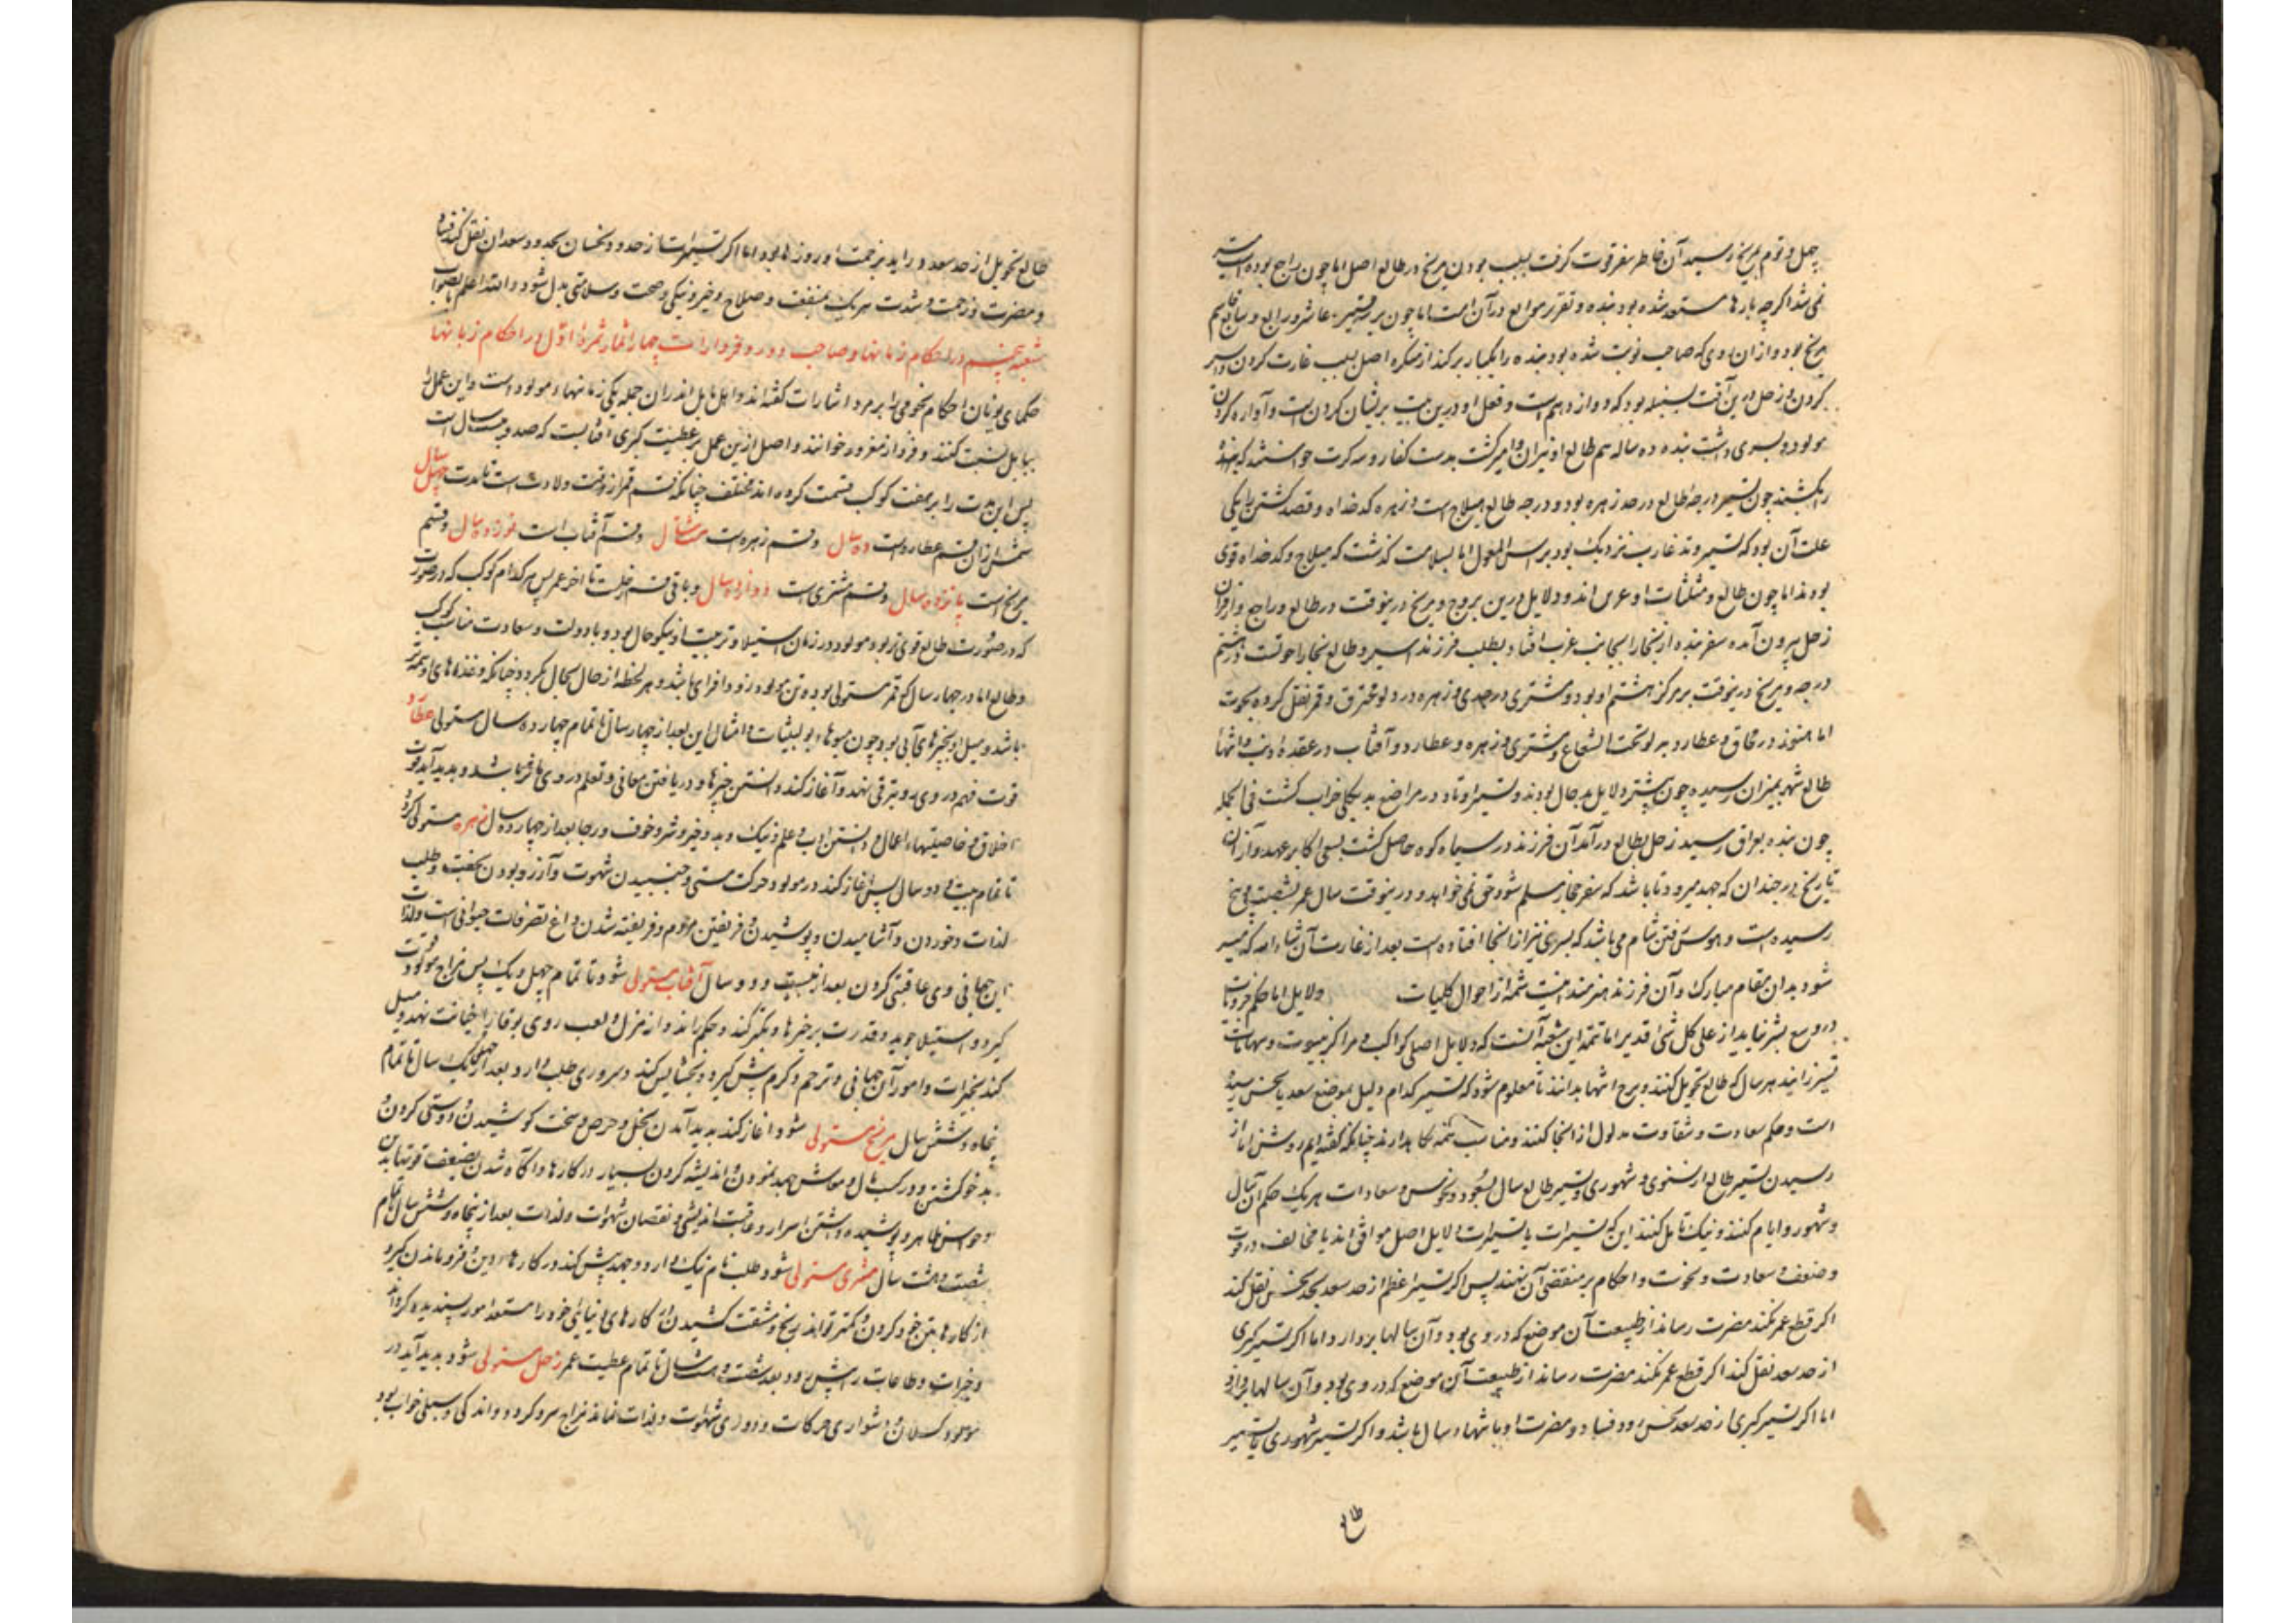 چهل و نوم بمریخ رسید آن خاطر سفر قوت گرفت بسبب بودن مریخ در طالع اصل اما چون راجع بوده است
نمی شد اگر چه بارها مستعد شده بود بنده و تقریر موانع در آن است اما چون عاشر و رابع و سابع
مریخ بود و از ان روی که صاحب نوبت شده بود بنده را یکبار برکند از اصل بسبب غارت کردن و اسیر
کردن و زحل درین آفت بسنبله بود که دوازدهم است و فعل او درین بیت پریشان کردن است و آواره کردن
مولود و پسری داشت بنده ده ساله هم طالع او میزان اسیر گشت بدست کفار و سه کرت خواستند که
را بکشند چون تسییر درجهٔ طالع در حد زهره بود و درجه طالع هیلاج است و زهره کدخداه و قصد کشتن را یکی
علت آن بود که تسییر وتد غارب نزدیک بود براس الغول اما بسلامت گذشت که هیلاج و کدخداه قوی
بودند اما چون طالع و مثلثات او درین بروج و مریخ درینوقت در طالع و راجع و
زحل بیرون آمده سفر بنده از بخارا بجانب غرب افتاد بطلب فرزند اسیر و طالع بخارا حوتست در هشتم
درجه و مریخ درینوقت بر مرکز هشتم او بود و مشتری در جدی و زهره در دلو محترق و قمر نقل کرده بحوت
اما هنوز در محاق و عطارد بدلو تحت الشعاع و مشتری و زهره و عطارد و آفتاب در عقدهٔ ذنب و انتها
طالع شهر بمیزان رسیده چون بیشتر دلایل بدحال بودند و تسییر اوتاد در مواضع بد بکلی خراب گشت فی الجمله
چون بنده بعراق رسید زحل بطالع در آمد آن فرزند در سیاه کوه حاصل گشت بسعی اکابر عهد و از ان
تاریخ هر چندان که جهد میرود تا باشد که سفر حجاز مسلم شود حق نمی خواهد و درینوقت سال عمر بشصت و پنج
رسیده است و هوس رفتن شام می باشد که پسری نیز از انجا افتاده است بعد از غارت آن شاء الله که میسر
شود بدان مقام مبارک و آن فرزند هنرمند اینست شمه از احوال کلیات دلایل اما حکم جزویات
در وسع بشر نیاید از علی کل شی قدیر اما تتمه این شعبه آنست که دلایل اصلی کواکب و مراکز بیوت و سهامات
تسییر زانید هر سال که طالع تحویل کنند و برج انتها بدانند تا معلوم شود که تسییر کدام دلیل بموضع سعد یا نحس رسیده
است و حکم سعادت و شقاوت مدلول از انجا کنند و مناسب نگاه دارند چنانکه گفته ایم روشن اما از
رسیدن تسییر طالع از سنوی و شهوری و تسییر طالع سال بسعود و نحوس و سعادات هر یک حکم آن سال
و شهور و ایام کنند و نیک تأمل کنند این که تسییرات با تسییرات دلایل اصل موافق اند یا مخالف در قوت
و ضعف و سعادت و نحوست و احکام بر مقتضی آن نهند پس اگر تسییر اعظم از حد سعد بحد نحس نقل کند
اگر قطع عمر نکند مضرت رساند از طبیعت آن موضع که در وی بود و آن سالها بردارد و اما اگر تسییر کبری
از حد سعد نقل کند اگر قطع عمر نکند مضرت رساند از طبیعت آن موضع که در وی بود و آن سالها بردارد
اما اگر تسییر کبری از حد سعد بنحس رود فساد و مضرت او با شهاد سال باشد و اگر تسییر شهوری یا تسییر
طالع
طالع تحویل از حد سعد و راید نرحمت او روزها بود اما اگر تسییرات از حدود نحسان بحدود سعدان نقل کند فساد
و مضرت و زحمت و شدت هر یک بمنفعت و صلاح و خیر و نیکی و صحت و سلامتی بدل شود و الله اعلم بالصواب
شعبه پنجم در احکام زمانها و صاحب دور و فردارات چهار اثمار ثمرهٔ اول در احکام زمانها
حکمای یونان احکام نجومی را بر مرد اشارات گفته اند و اهل بابل اندران جمله یکی زمانهاء مولود است و این عمل را
ببابل نسبت کنند و خوانند و اصل ازین عمل بر عطیت کبری آفتابست که صد و بیست سال است
پس این مدت را بر هفت کوکب قسمت کرده اند مختلف چنانکه قسم قمر از وقت ولادت است تا مدت چهار سال
عطاردست ده سال و قسم زهره است هشت سال و قسم آفتاب است نوزده سال و قسم
مریخ است پانزده سال و قسم مشتری است دوازده سال و باقی قسم زحلست تا آخر عمر پس هر کدام کوکب که در صورت
که در صورت طالع قوی تر بود مولود در زمان استیلا و تربیت او نیکو حال بود و با دولت و سعادت مناسب کوکب
و طالع اما در چهار سال که قمر مستولی بوده تن مولود زود افزای باشد و هر لحظه از حال بحال بگردد چنانکه و غذاهای او همه تر
باشد و میل او بچیزهای آبی بود چون میوها و امثال این بعد از چهار سال تا تمام چهارده سال مستولی عطارد
قوت فهم در وی روبترقی نهد و آغاز کند دانستن چیزها و دریافتن معانی و تعلم در وی باشد و پدید آید قوت
اخلاق و خاصیتها و اعمال و دانستن ادب و علم و نیک و بد و خیر و شر و خوف و رجا بعد از چهارده سال زهره مستولی گردد
تا تمام بیست و دو سال پس آغاز کند در مولود حرکت مستی و جنبیدن شهوت و آرزو بودن بخفت و طلب
لذات و خوردن و آشامیدن و پوشیدن و فریفتن مردم و فریفته شدن تصرفات حیوانی است و لذات
این جهانی و بی عاقبتی کردن بعد از بیست و دو سال آفتاب مستولی شود تا تمام چهل و یک پس مزاج مولود قوت
گیرد و استیلا جوید و قدرت بر چیزها و تکبر کند و حکم راند و از هزل و لعب روی بوقار نهد و میل
کند بخیرات و امور آن جهانی و ترحم و کرم پیش گیرد و بخشایش کند و سروری طلب دارد بعد از چهل و یک سال تا تمام
پنجاه و شش سال مریخ مستولی شود آغاز کند بدید آمدن بخل و حرص و سخت کوشیدن و دوستی کردن
بد خو گشتن و در کسب مال و معاش جهد نمودن و اندیشه کردن بسیار در کارها و آگاه شدن بضعف قوتهاء بدن
و حواس ظاهر و پوشیده داشتن اسرار و عاقبت اندیشی و نقصان شهوات و لذات بعد از پنجاه و شش سال تا تمام
شصت و هشت سال مشتری مستولی شود و طلب نام نیک دارد و جهد پیش کند در کارهاء دین و فرو ماندن گیرد
از کارها بتن خود کردن و کمتر تواند رنج و مشقت کشیدن از کارهای دنیائی خود را مستعد امور پسندیده گرداند
و خیرات و طاعات را پیش رود بعد شصت و هشت سال تا تمام عطیت عمر زحل مستولی شود پدید آید در
مولود کسلان و دشواری حرکات و دوری شهوات و لذات نماند مزاج سرد گردد و اندکی و سبکی خواب بود